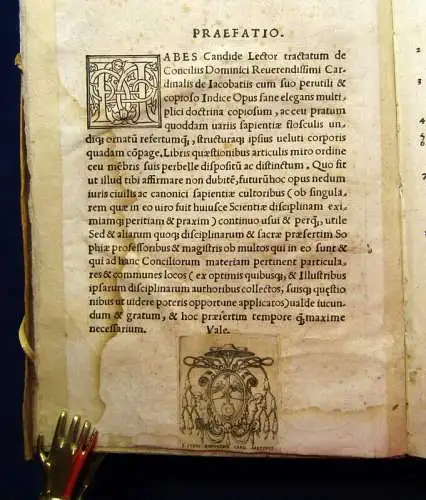 PRAEFATIO.
HABES Candide Lector tractatum de
Conciliis Dominici Reuerendissimi Car-
dinalis de Iacobatiis cum suo perutili &
copioso Indice Opus sane elegans multi
plici doctrina copiosum, ac ceu pratum
quoddam uariis sapientiæ flosculis un,
diqȝ ornatũ refertumqȝ, structuraqȝ ipsius ueluti corporis
quadam cõpage. Libris quæstionibus articulis miro ordine
ceu mẽbris suis perbelle dispositũ ac distinctum. Quo fit
ut illud tibi affirmare non dubitẽ, futurũ hoc opus nedum
iuris ciuilis ac canonici sapientiæ cultoribus (ob singula,
rem quæ in eo uiro fuit huiusce Scientiæ disciplinam exi,
miamqȝ peritiam & praxim) continuo usui & perqȝ, utile
Sed & aliarum quoqȝ disciplinarum & sacræ præsertim So
phiæ professoribus & magistris ob multos qui in eo sunt &
qui ad hanc Conciliorum materiam pertinent particula,
res & communes locos (ex optimis quibusqȝ, & Illustribus
ipsarum disciplinarum authoribus collectos, suisqȝ quęstio
nibus ut uidere poteris opportune applicatos) ualde iucun
dum & gratum, & hoc præsertim tempore qȝ maxime
necessarium. Vale.